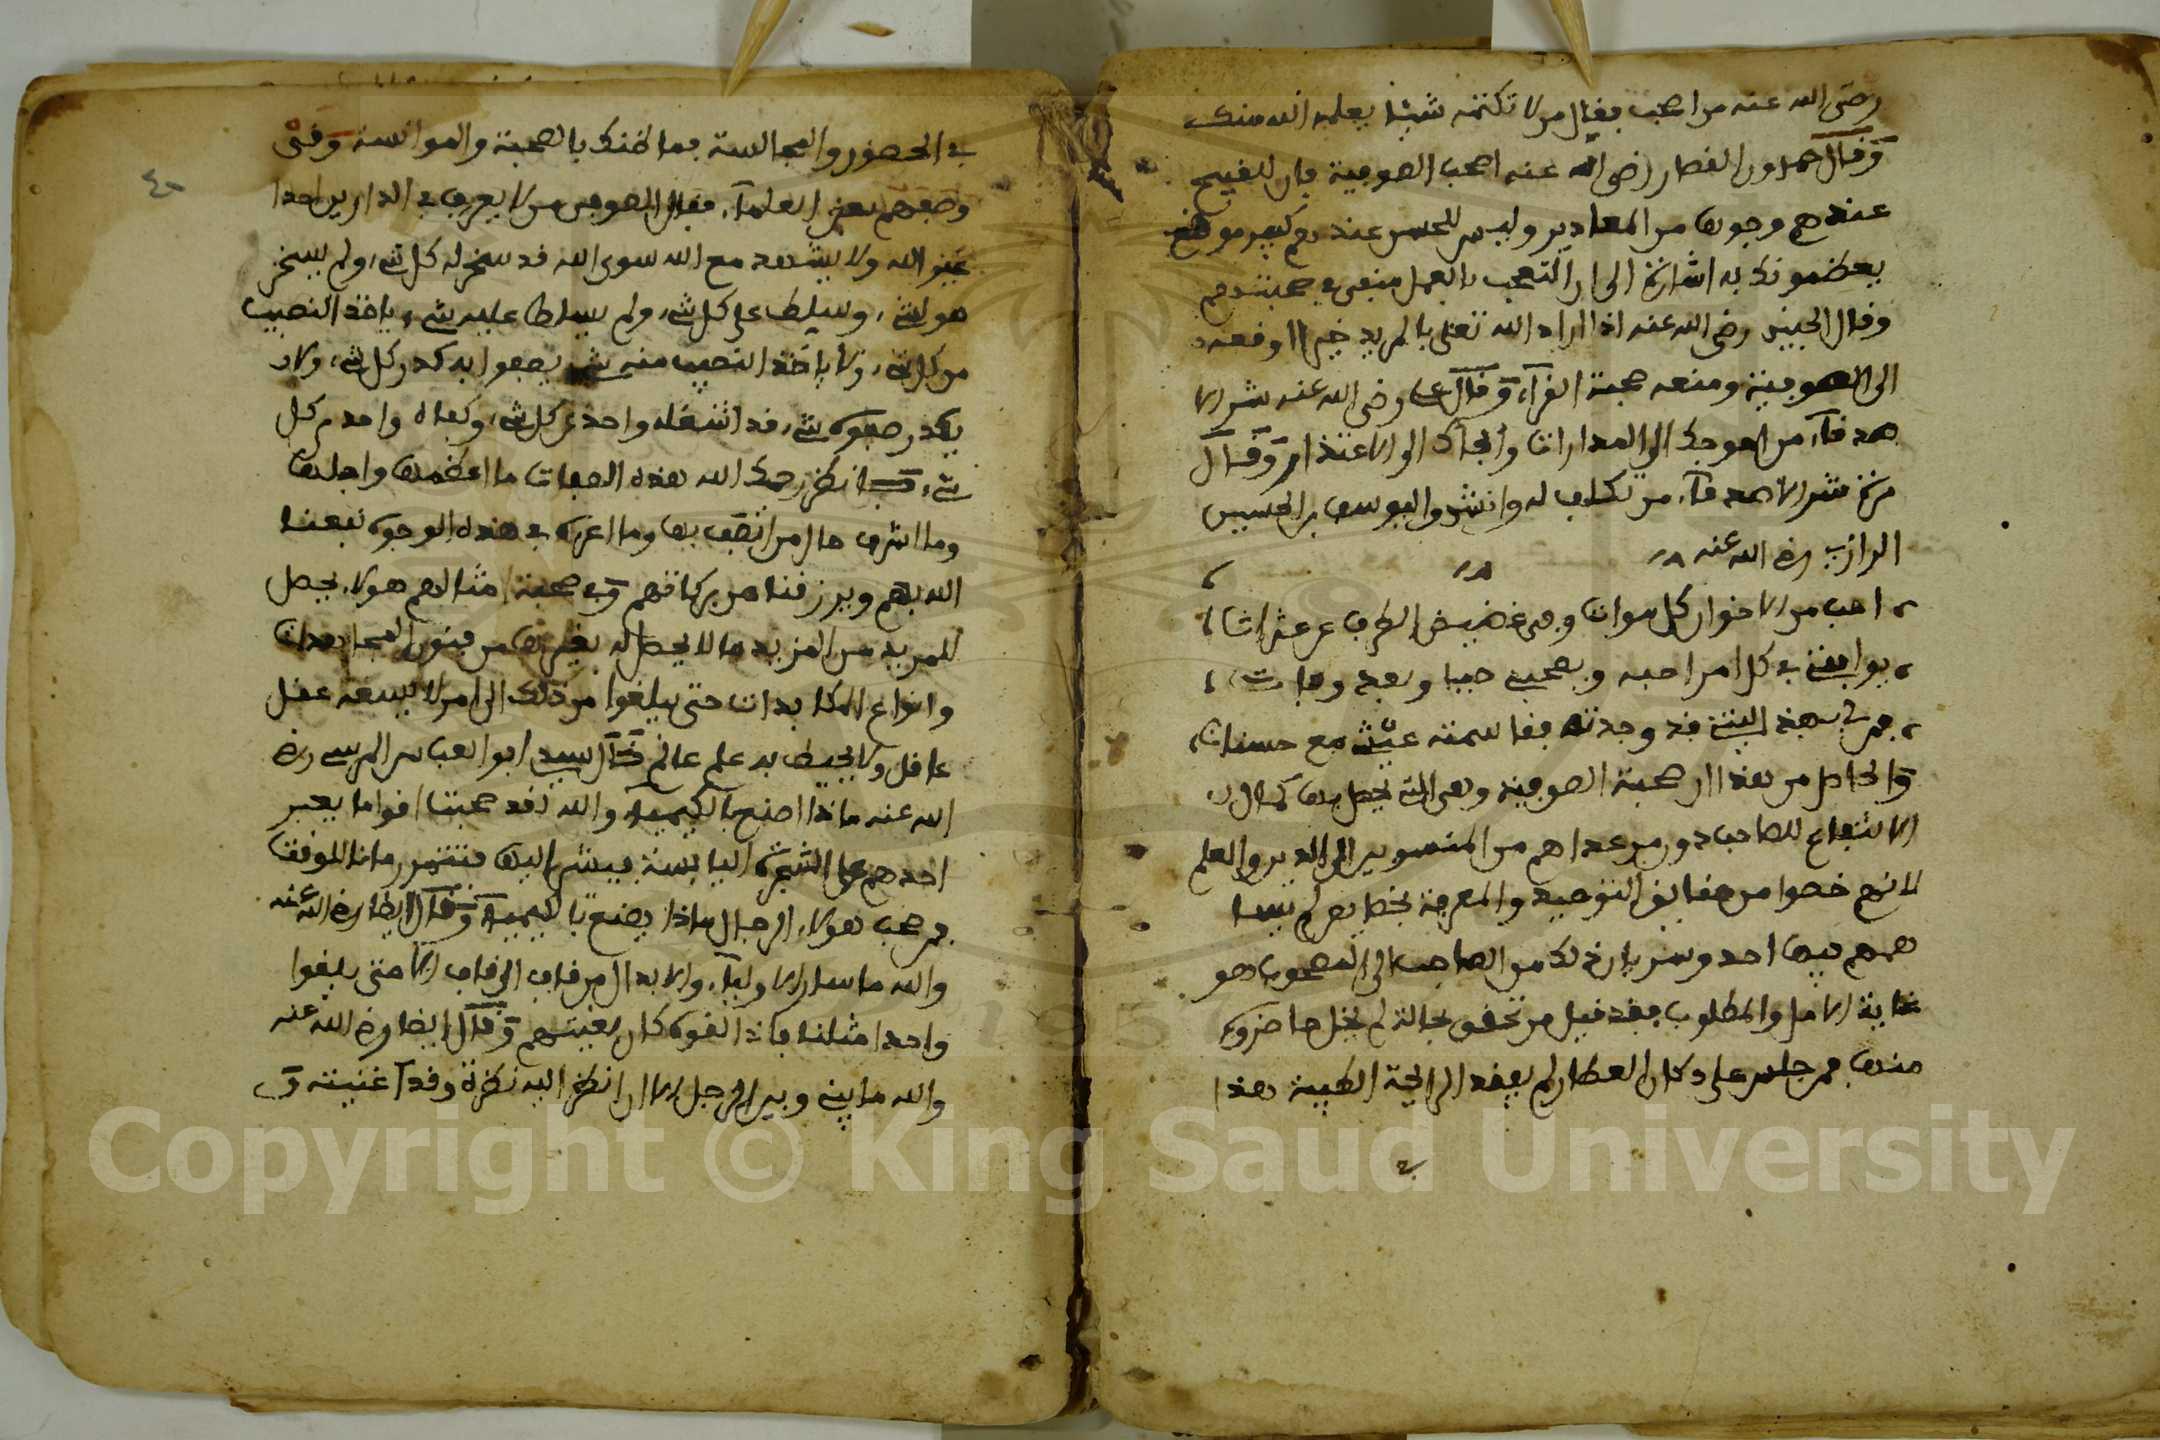 رضى الله عنه من اصحب فقال من لا تكتمه شيئا يعلمه الله منك
وقال حمدون القصار رضى الله عنه اصحب الصوفية فان للقبيح
عندهم وجوها من المعاذير وليس للحسن عندهم كبير موقع
يعظمونك به اشارة الى ان العجب بالعمل منفى فى صحبتهم
وقال الجنيد رضى الله عنه اذا اراد الله تعلى بالمريد خيرا اوقعه
الى الصوفية ومنعه صحبة القراء وقال على رضى الله عنه شر الا
صدقاء من احوجك الى المدارات والجاك الى الاعتذار وقال
مرة شر الاصدقاء من تكلف له وانشد ابو يوسف بن الحسين
الرازى رضى الله عنه
احب من الاخوان كل موات وفى غضيض الطرف عن عثرات
يوافقنى فى كل امر احبه ويحفظنى حيا وبعد وفات
فمن لى بهذا ليتنى قد وجدته فقاسمته عيشى مع حسنات
والحاصل من هذا ان صحبة الصوفية وهى التى يحصل بها كمال
الانتفاع للصاحب دون من عداهم من المنسوبين الى الدين والعلم
لانهم خصوا من حقايق التوحيد والمعرفة بخصايص لم يسا
همهم فيها احد وسريان ذلك من الصاحب الى المصحوب هو
غاية الامل والمطلوب فقد قيل من تحقق بحالة لم يخل حاضروه
منها فمن جلس على دكان العطار لم يفقد الرايحة الطيبة هذا
فى
٤٠
فى الحضور والمجالسة فما ظنك بالصحبة والموانسة وقد
وصفهم بعض العلماء فقال الصوفى من لا يعرف فى الدارين احدا
غير الله ولا يشهد مع الله سوى الله قد سخر له كل شىء ولم يسخر
هو لشىء وسلط على كل شىء ولم يسلط عليه شىء ياخذ النصيب
من كل شىء ولا ياخذ النصيب منه شىء يصفوا به كدر كل شىء ولا
يكدر صفوه شىء قد اشغله واحد عن كل شىء وكفاه واحد من كل
شىء فانظر رحمك الله هذه الصفات ما اعظمها واجلها
وما اشرف حال من اتصف بها وما اعزه فى هذه الوجود نفعنا
الله بهم ويرزقنا من بركاتهم وفى صحبة امثالهم هولاء يحصل
للمريد من المزيد ما لا يحصل له بغيرها من فنون المجاهدات
وانواع المكابدات حتى يبلغوا من ذلك الى امر لا يسعه عقل
عاقل ولا يحيط به علم عالم قال سيدى ابو العباس المرسى رضى
الله عنه ماذا اصنع بالكيمياء والله لقد صحبنا اقواما يعبر
احدهم على الشجرة اليابسة فيشير اليها فتثمر رمانا للوقت
فمن صحب هولاء الرجال ماذا يصنع بالكيمياء وقال ايضا رضى الله عنه
والله ما سار الاولياء والابدال من قاف الى قاف الا حتى يلقوا
واحدا مثلنا فاذا لقوه كان بغيتهم وقال ايضا رضى الله عنه
والله ما بينى وبين الرجل الا ان انظر اليه نظرة وقد اغنيته و
Copyright © King Saud University